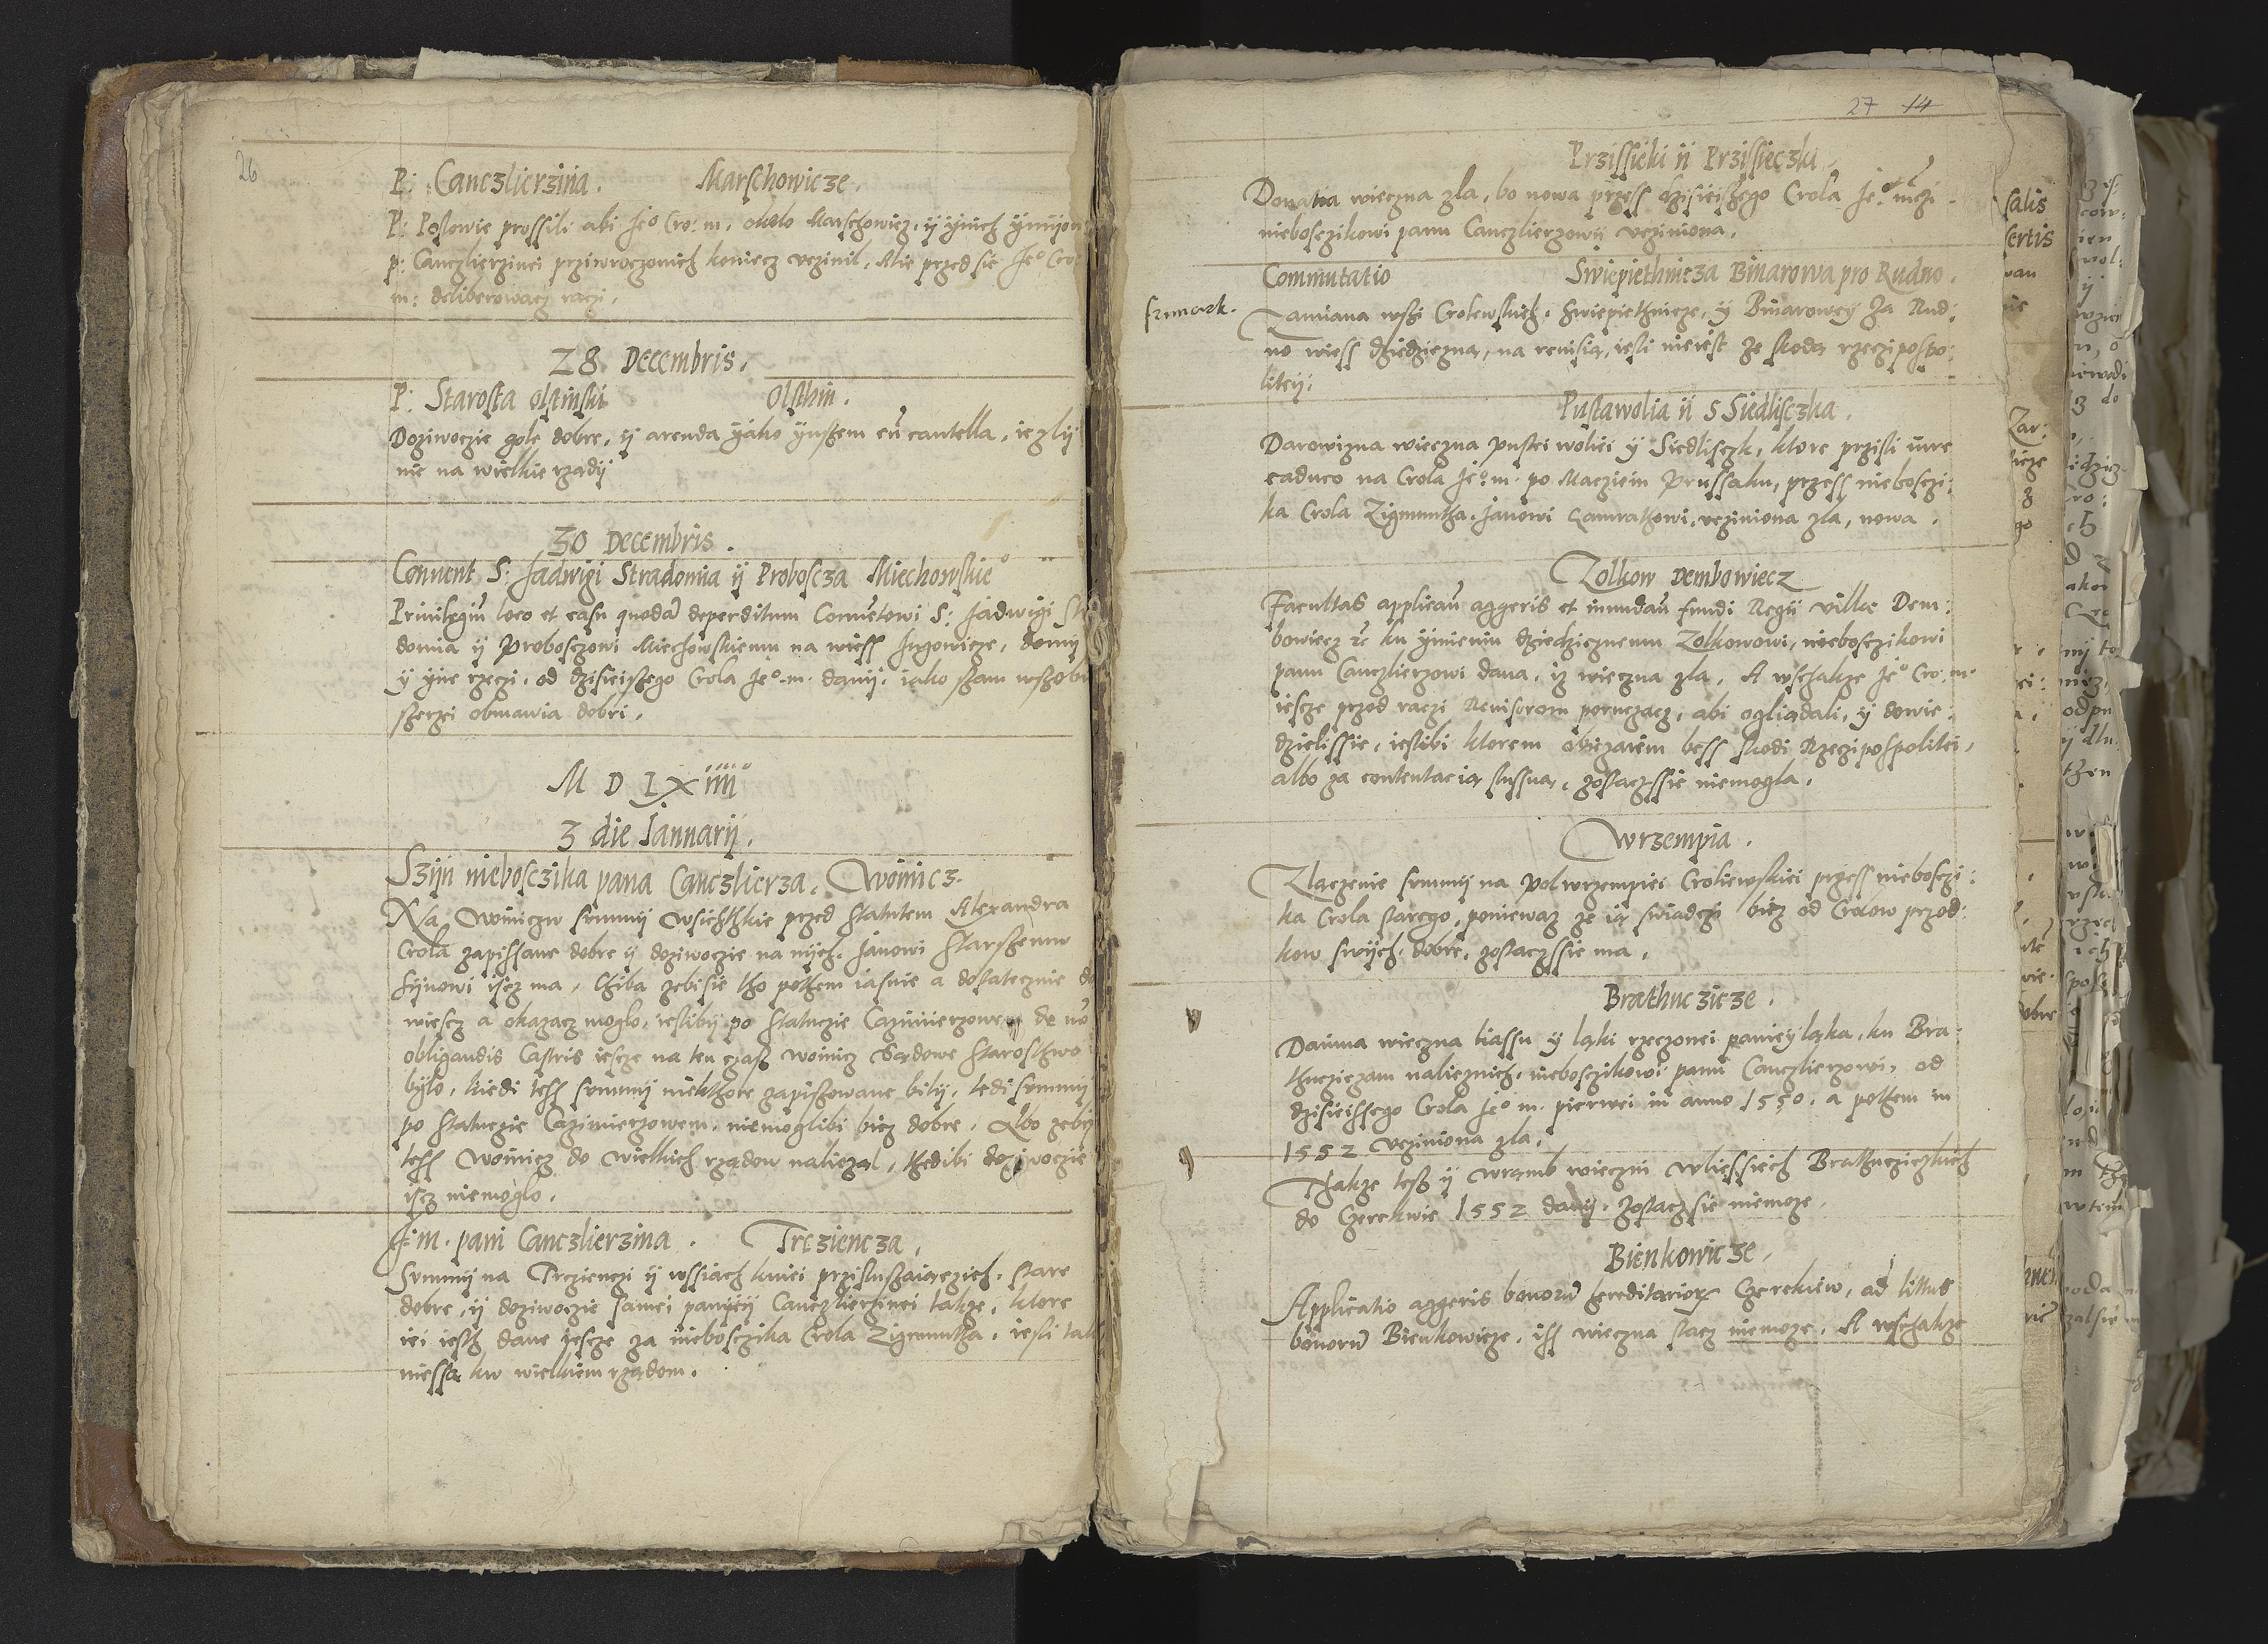 26
P: Canczlierzina. Marschowicze.
P: Poslowie prossili abi Je° Cro: m. okolo Marschowicz. ÿ ÿnich ÿmijon
p: Canczlierzinei prziwroczonich koniecz vczinil, Alie przed sie Je° Cro
m: deliberowacz raczi.
28 Decembris.
P: Starosta olstinski Olsthin.
Doziwoczie gole dobre, ÿ arenda ÿako ÿnszem cū cautella, iezlÿ
nie na wielkie rzadÿ
30 Decembris.
Conuent S: Jadwigi Stradomia ÿ Proboscza Miechowskie°
Priuilegiū loco et casu quodā deperditum Conuētowi S: Jadwigi St
domia ÿ Proboszowi Miechowskiemu na wiess Jrgowicze, domÿ
ÿ ÿne rzeczi. od dzisieiszego Crola Je° m. danÿ. iako szam wszobi
szerzei obmawia dobri.
M D LXiiii°
3 die Januarÿ.
Szÿn nieboscżika pana Canczlierza. Woinicz.
Na Woiniczu summÿ wsichthkie przed statutem Alexandra
Crola zapissane dobre ÿ doziwoczie na nÿch. Janowi starszemu
sÿnowi iscz ma, Chiba zebisie tho pothem iasnie a dostatecznie do
wiescz a okazacz moglo, iestlibÿ po statuczie Cazimierzowem de nō
obligandis Castris iescze na ten czass woinicz Sądowe Starosthwo
bÿlo, kiedi tess summÿ niekthore zapiszowane bilÿ, tedi summÿ
po statuczie Cazimierzowem. niemoglibi bicz dobre. Albo zebÿ
tess Woinicz do wielkich rządow naliezal, thedibi doziwoczie
iscz niemoglo.
J: m. pani Canczlierzina. Trcziencza.
Summÿ na Trczienczi ÿ wssiach kuniei przisluszaiączich. stare
dobre, ÿ doziwoczie samei panieÿ Canczlierzinei takze, ktore
iei iesth dane iescze za nieboscżika Crola Zigmuntha. iesli tak
niessą kw wielkiem rządom.
27 14
Przissieki ÿ Przisieczki.
Donatia wieczna zla, bo nowa przess dzisieiszego Crola Je°: mczi
niebosczikowi panu Canczlierzowi vcziniona.
Commutatio Swiepiethnicza Binarowa pro Rudno.
frimark.
Zamiana wssi Crolewskich. Swiepiethnicze, ÿ Binarowey za Rud:
no wiess dziedziczną, na reuisią, iesli nieiest ze skodą rzeczipospo:
litei.
Pustawolia ÿ S Siedlisczka.
Darowizna wieczna Pustei woliei ÿ Siedlisczk, ktore przisli iure
caduco na Crola Je°: m. po Macziein Prussaku, przess niebosczi:
ka Crola Zigmuntha. Janowi Gamrathowi, vcziniona zla, nowa.
Zolkow Dembowiecz
Facultas applicań aggeris et inundań fundi Regii villae Dem:
bowiecz &c ku ÿmieniu dziedzicznemu Zolkowowi, niebosczikowi
panu Canczlierzowi dana, iz wieczna zla, A wschakze Je° Cro: m.
iescze przed raczi Reuisorom poruczacz, abi oglądali, ÿ dowie:
dzielissie, iestlibi ktorem obiczaiem bess skodi Rzeczipospolitei,
albo za contentacią slusną, zostaczssie niemogla.
Wrzempia.
Zlączenie summÿ na Polwrzempiei Croliewskiei przess niebosczi:
ka Crola starego, poniewaz ze ią swiadczi bicz od Crolow przod:
kow swÿch. dobre, zostaczssie ma.
Brathuczicze.
Daūna wieczna liassu ÿ ląki rzeczonei panieÿ ląka, ku Bra:
thucziczam nalieznich. niebosczikowi panū Canczlierzowi, od
dzisieissego Crola Je° m. pierwei in anno 1550. a pothem in
1552 vcziniona zla.
Thakze tess ÿ wramb wieczni wliessiech Brathucziczkich
do Czerekwie 1552 danÿ. zostaczsie niemoze.
Bienkowicze.
Applicatio aggeris bonorū hereditariorꝝ Czerekiew, ad littus
bonorū Bienkowicze. iss wieczna stacz niemoze. A wschakze